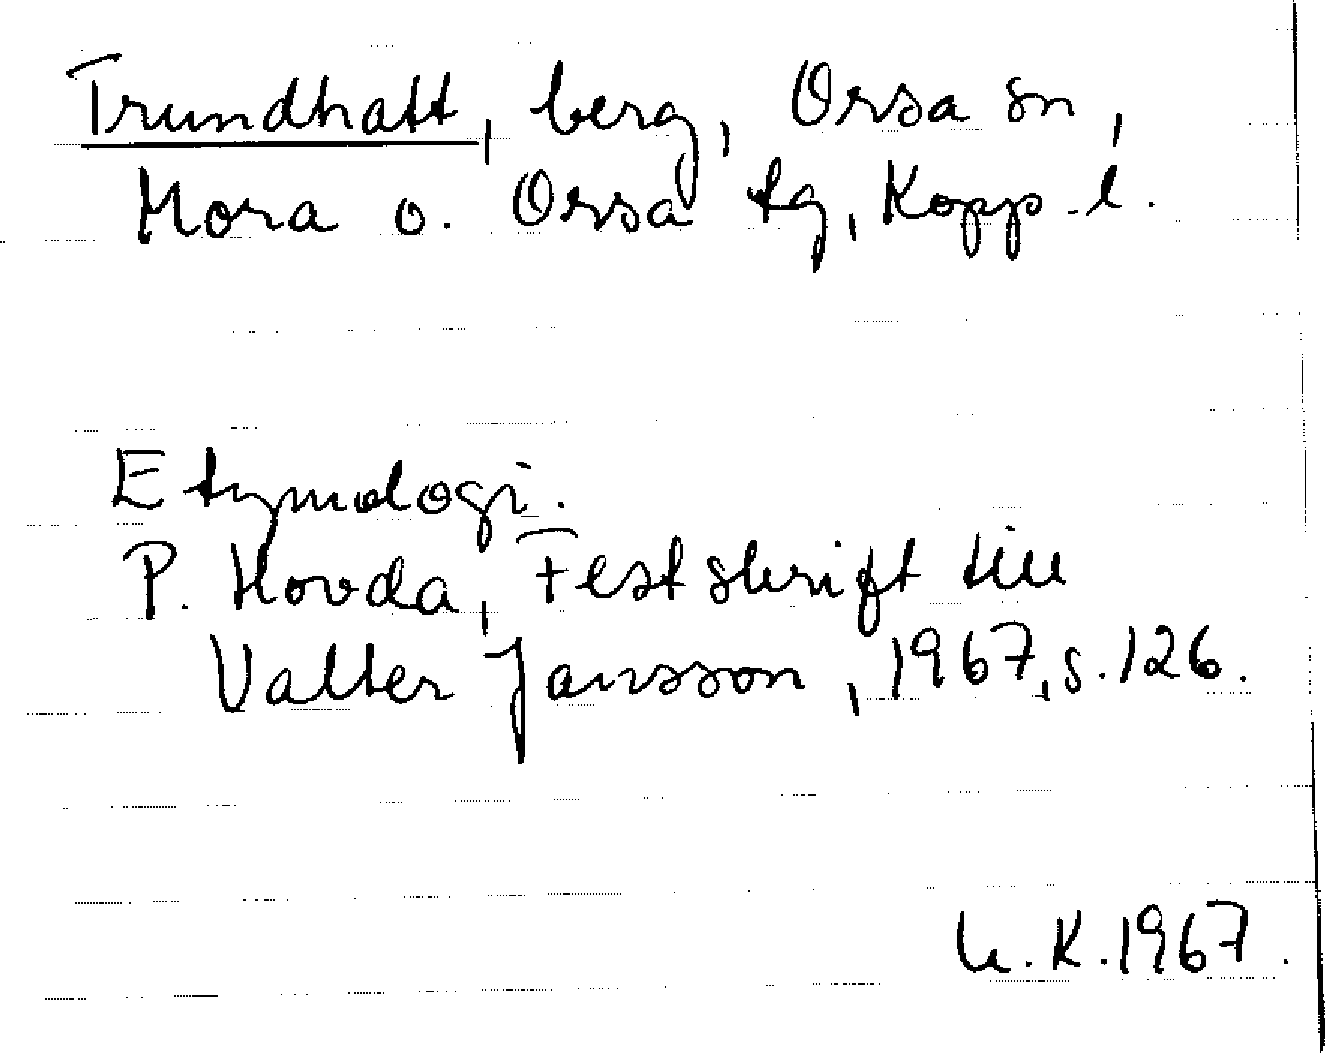 Trundhatt, berg, Orsa sn,
Mora o. Orsa tg, Kopp. l.
Etymologi.
P. Hovda, Festskrift till
Valter Jansson, 1967, s. 126.
K. 1967.